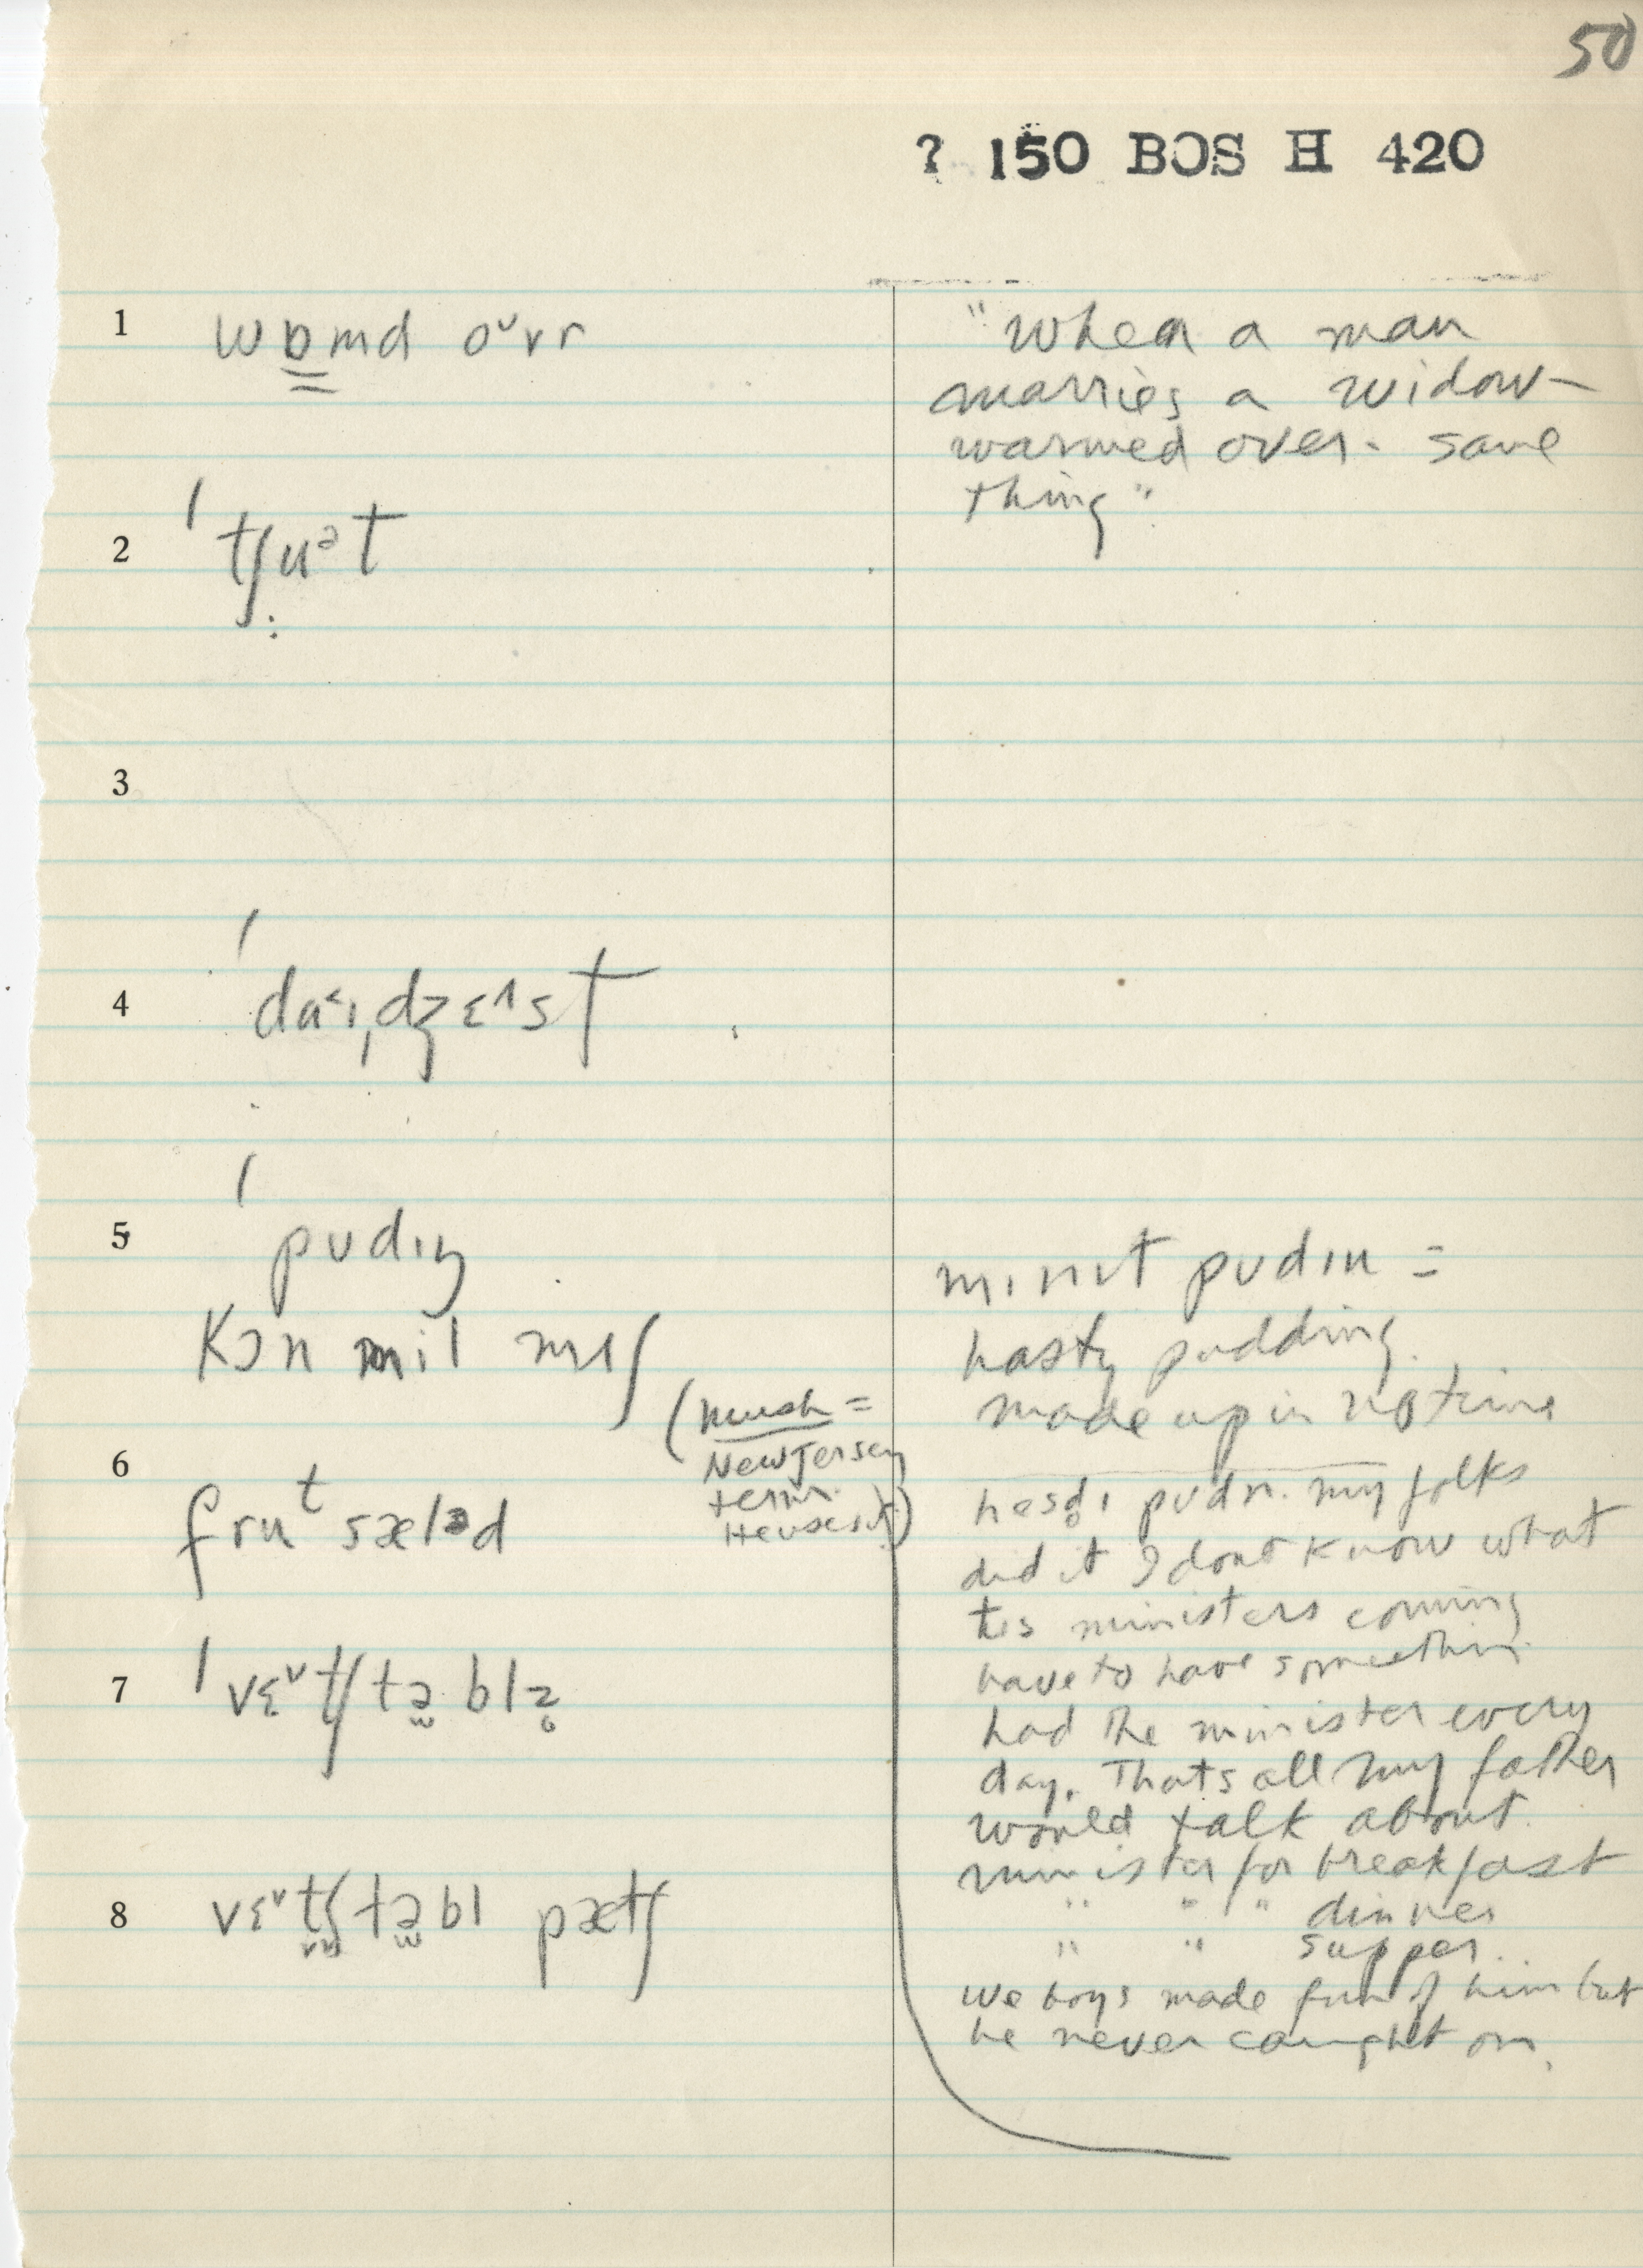 50
? 150 BOS H 420
1 wɒmd oᵛvr
"when a man
marries a widow-
warmed over - same
thing"
2 ˈtʃuᵊt
3
4 ˈdaˑɪˌdʒɛ^st
5 ˈpʊdɪŋ
kɔn mil mʌʃ
(mush =
New Jersey
term.
Heuses it)
mɪnɪt pʊdɪn =
hasty pudding.
made up in no time
6 fruᵗ sæləd
hesd̥ɪ pʊdn. my folks
did it I dont know what
tis ministers coming
have to have somethin
7 ˈvɛᵛtʃtəblə
had the minister every
day. Thats all my father
would talk about.
minister for breakfast
8 vɛᵛtʃtəbl pætʃ
" " " dinner
" " supper.
we boys made fun of him but
he never caught on.